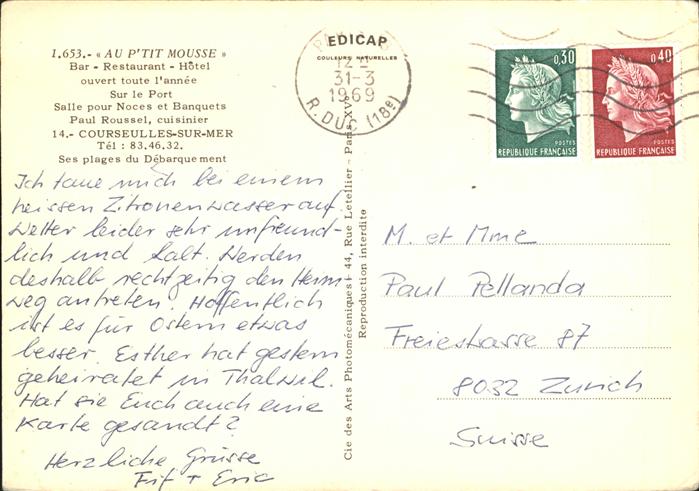 1.653.- « AU P'TIT MOUSSE »
Bar - Restaurant - Hôtel
ouvert toute l'année
Sur le Port
Salle pour Noces et Banquets
Paul Roussel, cuisinier
14.- COURSEULLES-SUR-MER
Tél : 83.46.32.
Ses plages du Débarquement
Ich taue mich bei einem
heissen Zitronenwasser auf,
Wetter leider sehr unfreund-
lich und kalt. Werden
deshalb rechtzeitig den Heim-
weg antreten. Hoffentlich
ist es für Ostern etwas
besser. Esther hat gestern
geheiratet in Thalwil.
Hat sie Euch auch eine
Karte gesandt?
Herzliche Grüsse
Eric
EDICAP
COULEURS NATURELLES
Cie des Arts Photomécaniques - 44, Rue Letellier - Paris XVe
Reproduction interdite
31-3
1969
R. DUC (18e)
0,30
POSTES
REPUBLIQUE FRANÇAISE
0,40
POSTES
REPUBLIQUE FRANÇAISE
M. et Mme
Paul Pellanda
Freiestrasse 87
8032 Zurich
Suisse